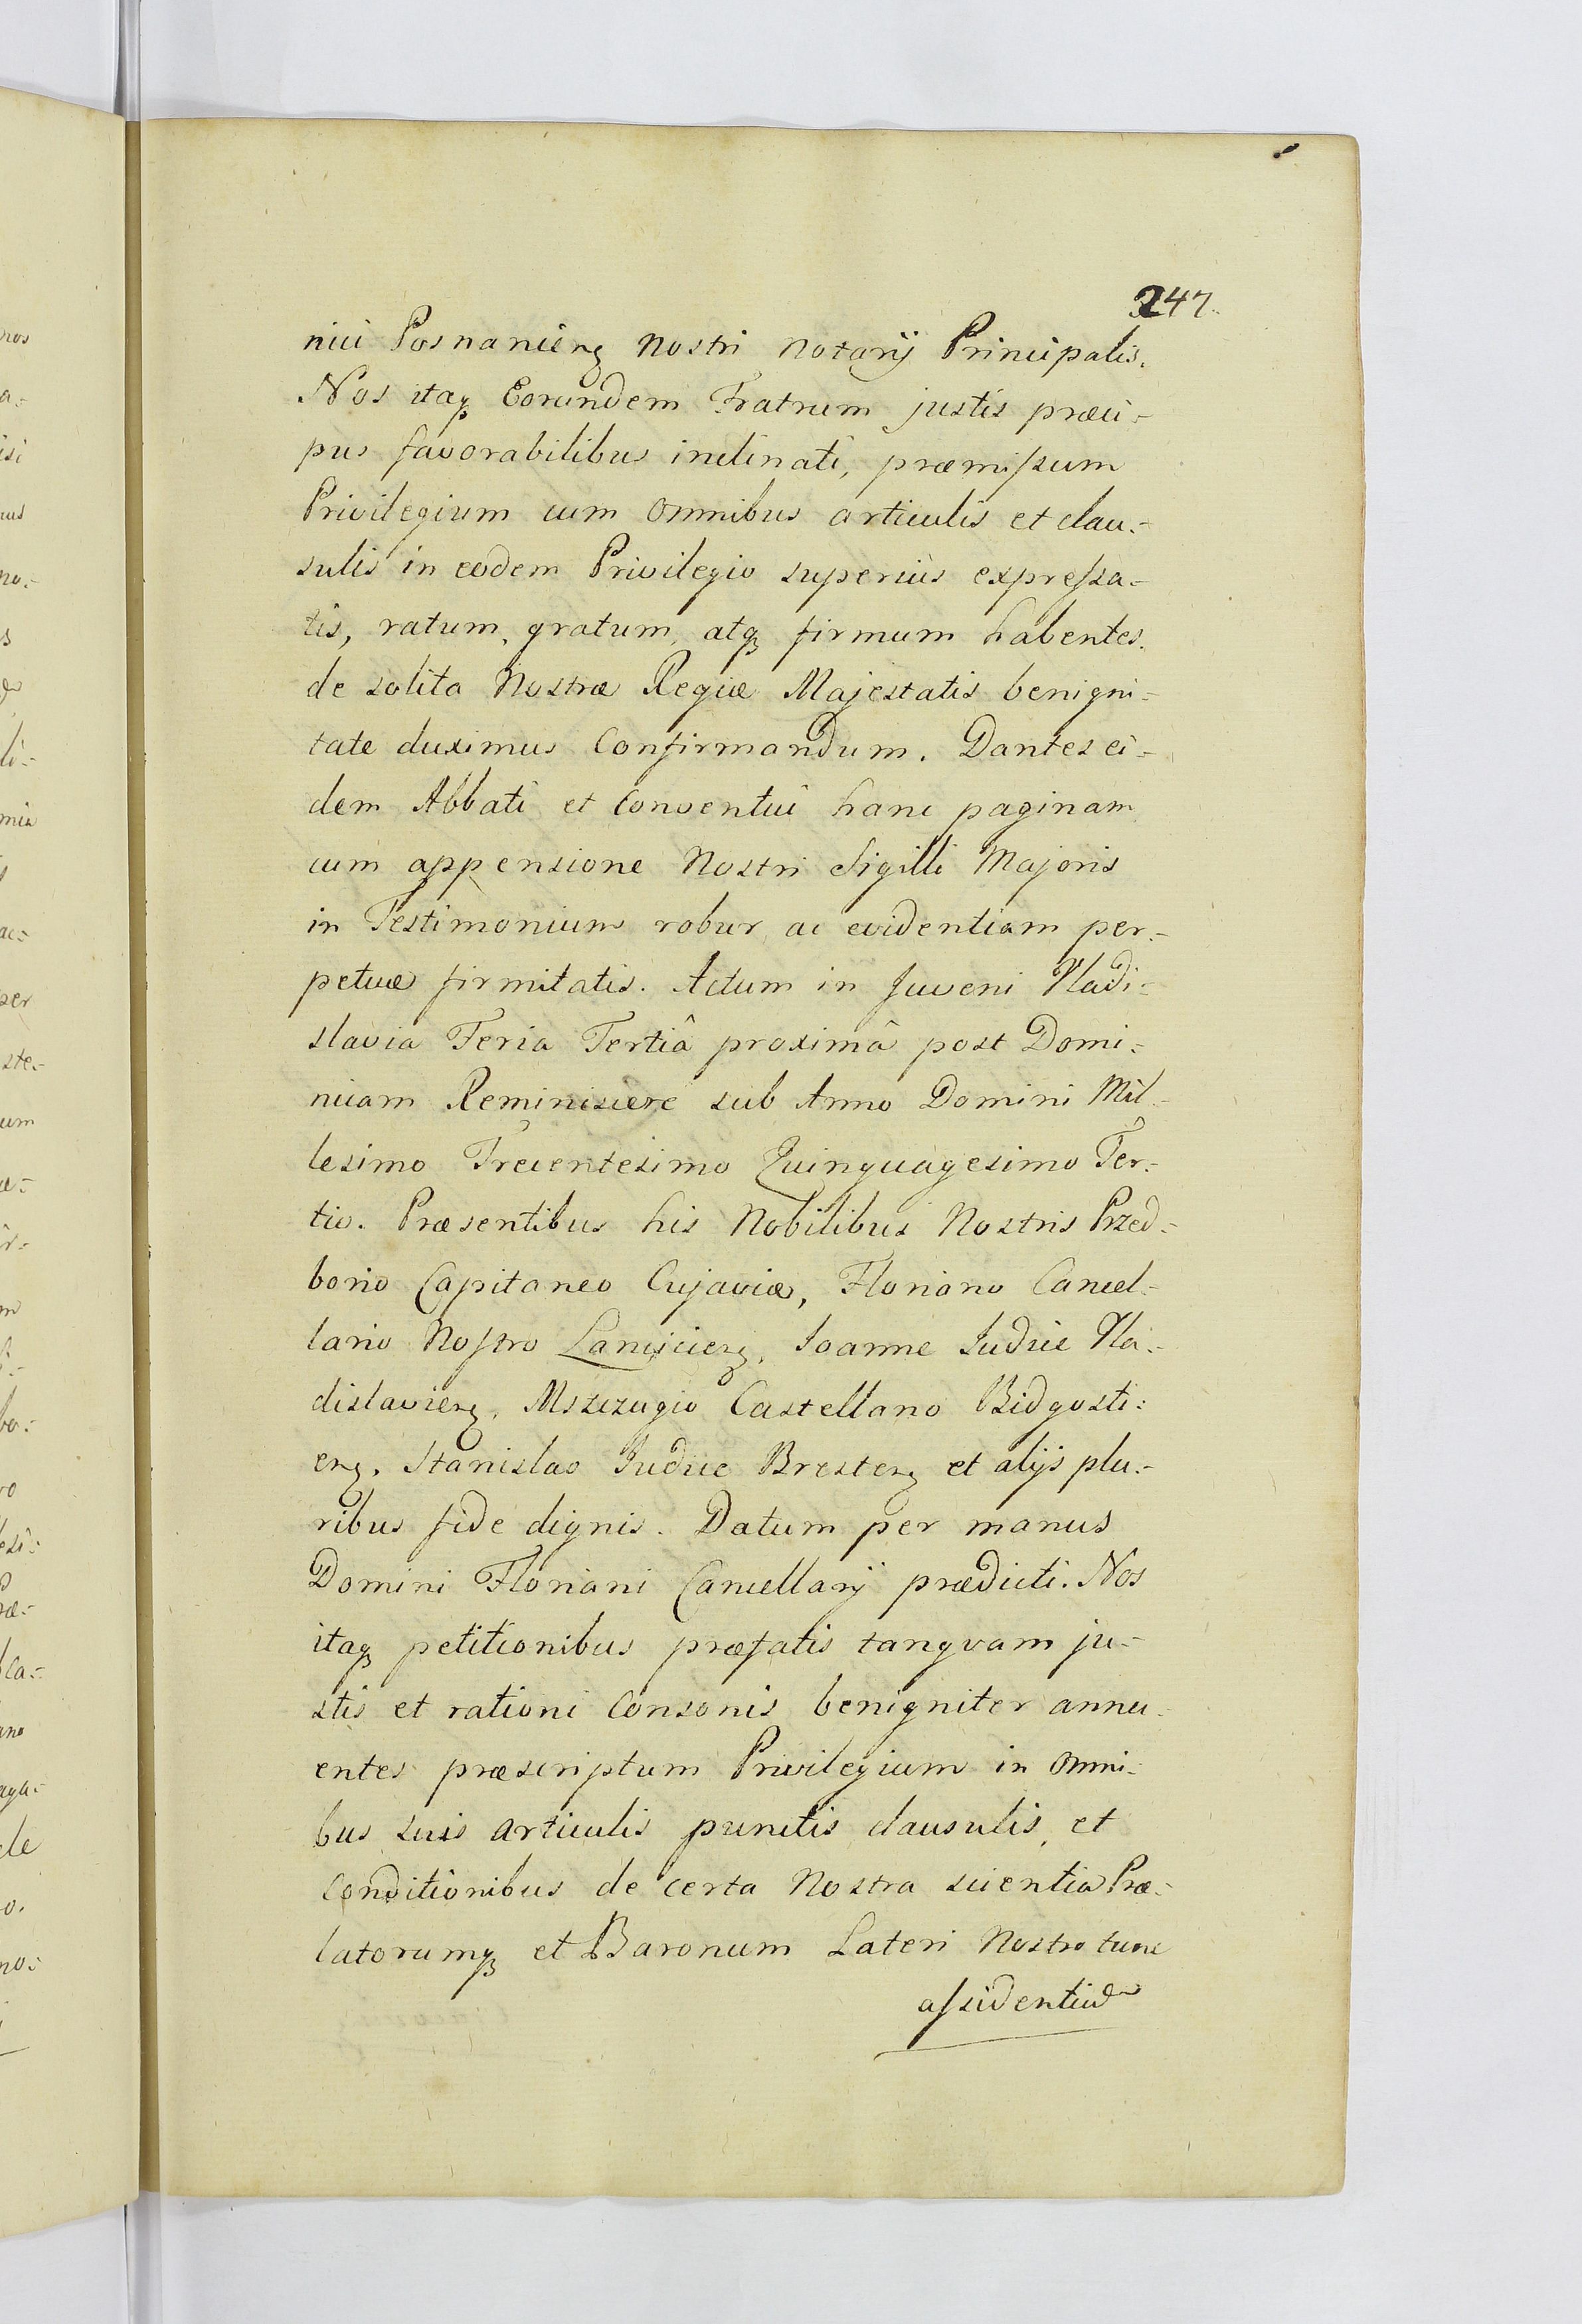 247.
nici Posnanien̄ Nostri Notarij Principalis.
Nos itaq Eorundem Fratrum justis præci-
pus favorabilibus inclinati, præmiſsum
Privilegium cum Omnibus articulis et clau-
sulis in eodem Privilegio superiùs expreſsa-
tis, ratum, gratum, atq firmum habentes.
de solita Nostræ Regiæ Majestatis benigni-
tate duximus Confirmandum. Dantes ei-
dem Abbati et Conventui hanc paginam
cum appensione Nostri Sigilli Majoris
in Testimonium robur ac evidentiam per-
petuæ firmitatis. Actum in Juveni Vladi-
slavia Feria Tertiâ proximâ post Domi-
nicam Reminiscere sub Anno Domini Mil-
lesimo Trecentesimo Quinquagesimo Ter-
tio. Præsentibus his Nobilibus Nostris Przed-
borio Capitaneo Cujaviæ, Floriano Cancel-
lario Noſtro Lancicien̄, Joanne Judice Vla-
dislavien̄, Mszczugio Castellano Bidgosti-
en̄, Stanislao Judice Bresten̄ et alijs plu-
ribus fide dignis. Datum per manus
Domini Floriani Cancellarij prædicti. Nos
itaq petitionibus præfatis tanqvam ju-
stis et rationi Consonis benigniter annu-
entes præscriptum Privilegium in Omni-
bus suis Articulis punctis clausulis, et
Conditionibus de certa Nostra scientia Præ-
latorumq et Baronum Lateri Nostro tunc
aſsidentium